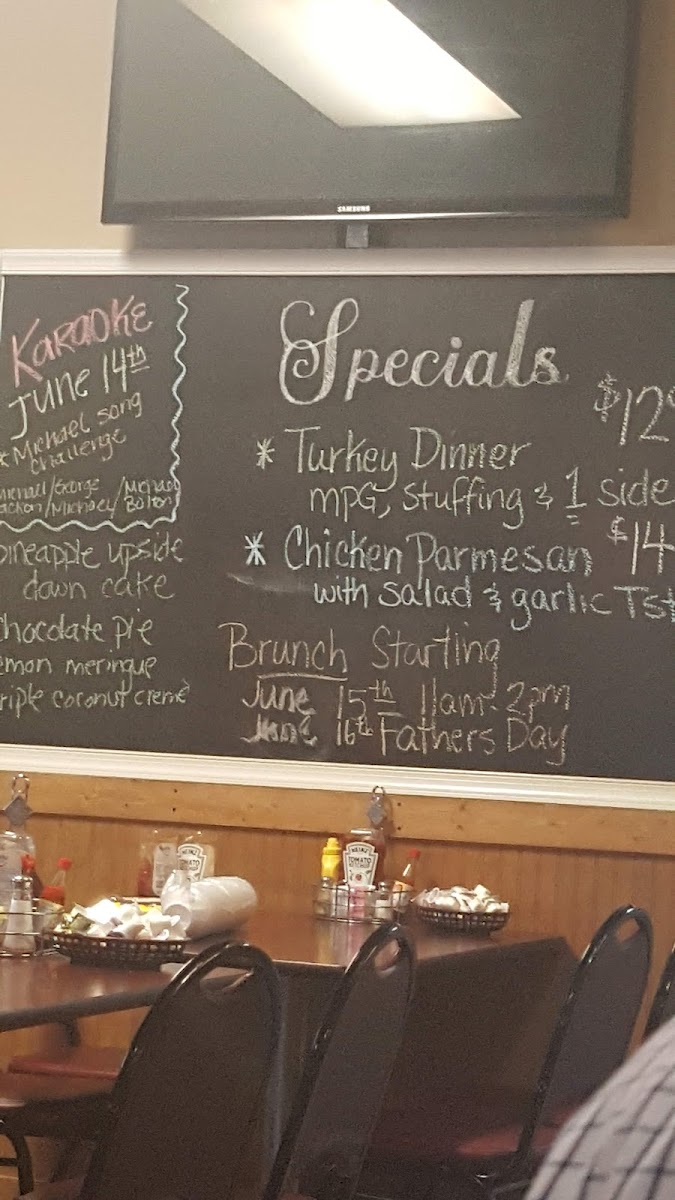 SAMSUNG
KARAOKE
June 14th
* Michael song
challenge
Michael/George
Jackson/Michael/Michael
Bolton
pineapple upside
down cake
chocolate pie
lemon meringue
triple coconut creme
Specials
$12
* Turkey Dinner
mpG, Stuffing & 1 side
* Chicken Parmesan $14
with salad & garlic Tst
Brunch Starting
June 15th 11am-2pm
June 16th Fathers Day
HEINZ
TOMATO
KETCHUP
HEINZ
TOMATO
KETCHUP